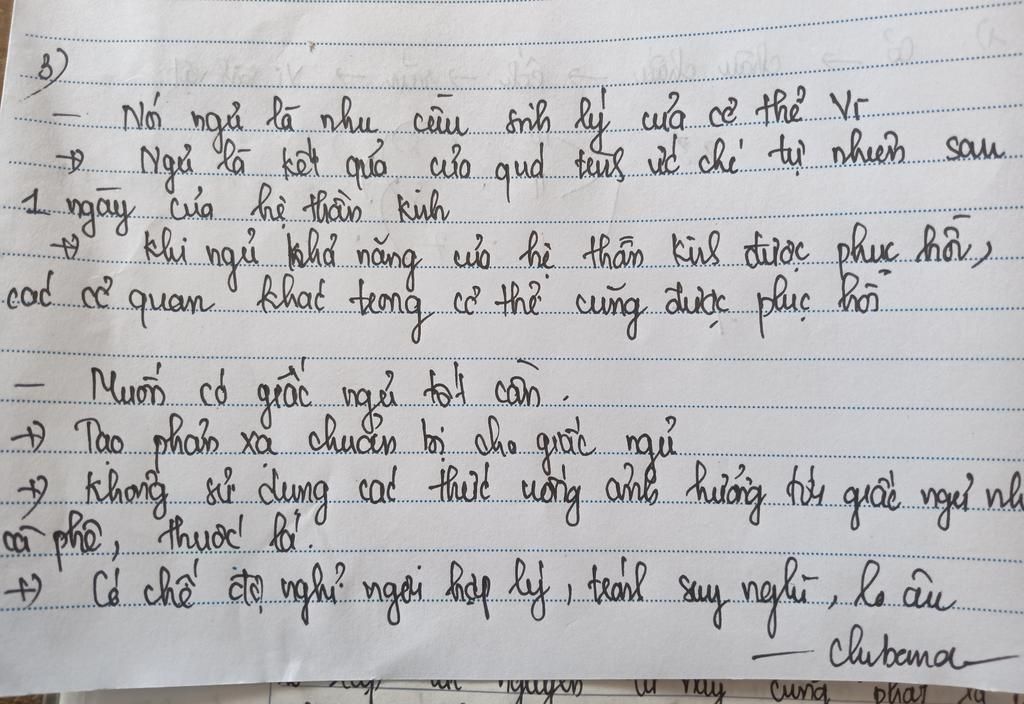 3)
- Nói ngủ là nhu cầu sinh lý của cơ thể Vr
→ Ngủ là kết quả của quá trình ức chế tự nhiên sau
1 ngày của hệ thần kinh
→ khi ngủ khả năng của hệ thần kinh được phục hồi,
các cơ quan khác trong cơ thể cũng được phục hồi
- Muốn có giấc ngủ tốt cần.
→ Tạo phản xạ chuẩn bị cho giấc ngủ
→ không sử dụng các thức uống ảnh hưởng tới giấc ngủ nh
cà phê, thuốc lá.
→ Có chế độ nghỉ ngơi hợp lý, tránh suy nghĩ, lo âu
- clubama -
nguyên tử này cũng phát xạ